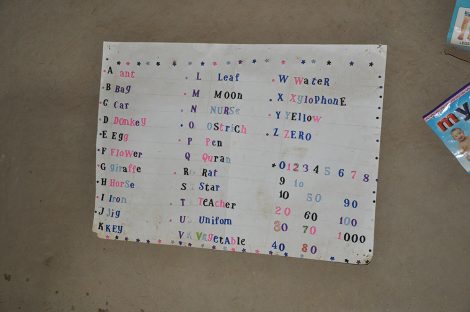 A ant
B Bag
C Car
D DOnKey
E Egg
F FloWer
G giraffe
H HorSe
I Iron
J Jig
K KEY
L Leaf
M MOOn
N NURSe
O OStriCh
P Pen
Q Quran
R Rat
S Star
T TeAcher
U Unifom
V VegetAble
W WateR
X XyloPhonE
Y YEllow
Z ZERO
0 1 2 3 4 5 6 7 8
9 10
10 50 90
20 60 100
30 70 1000
40 80
my